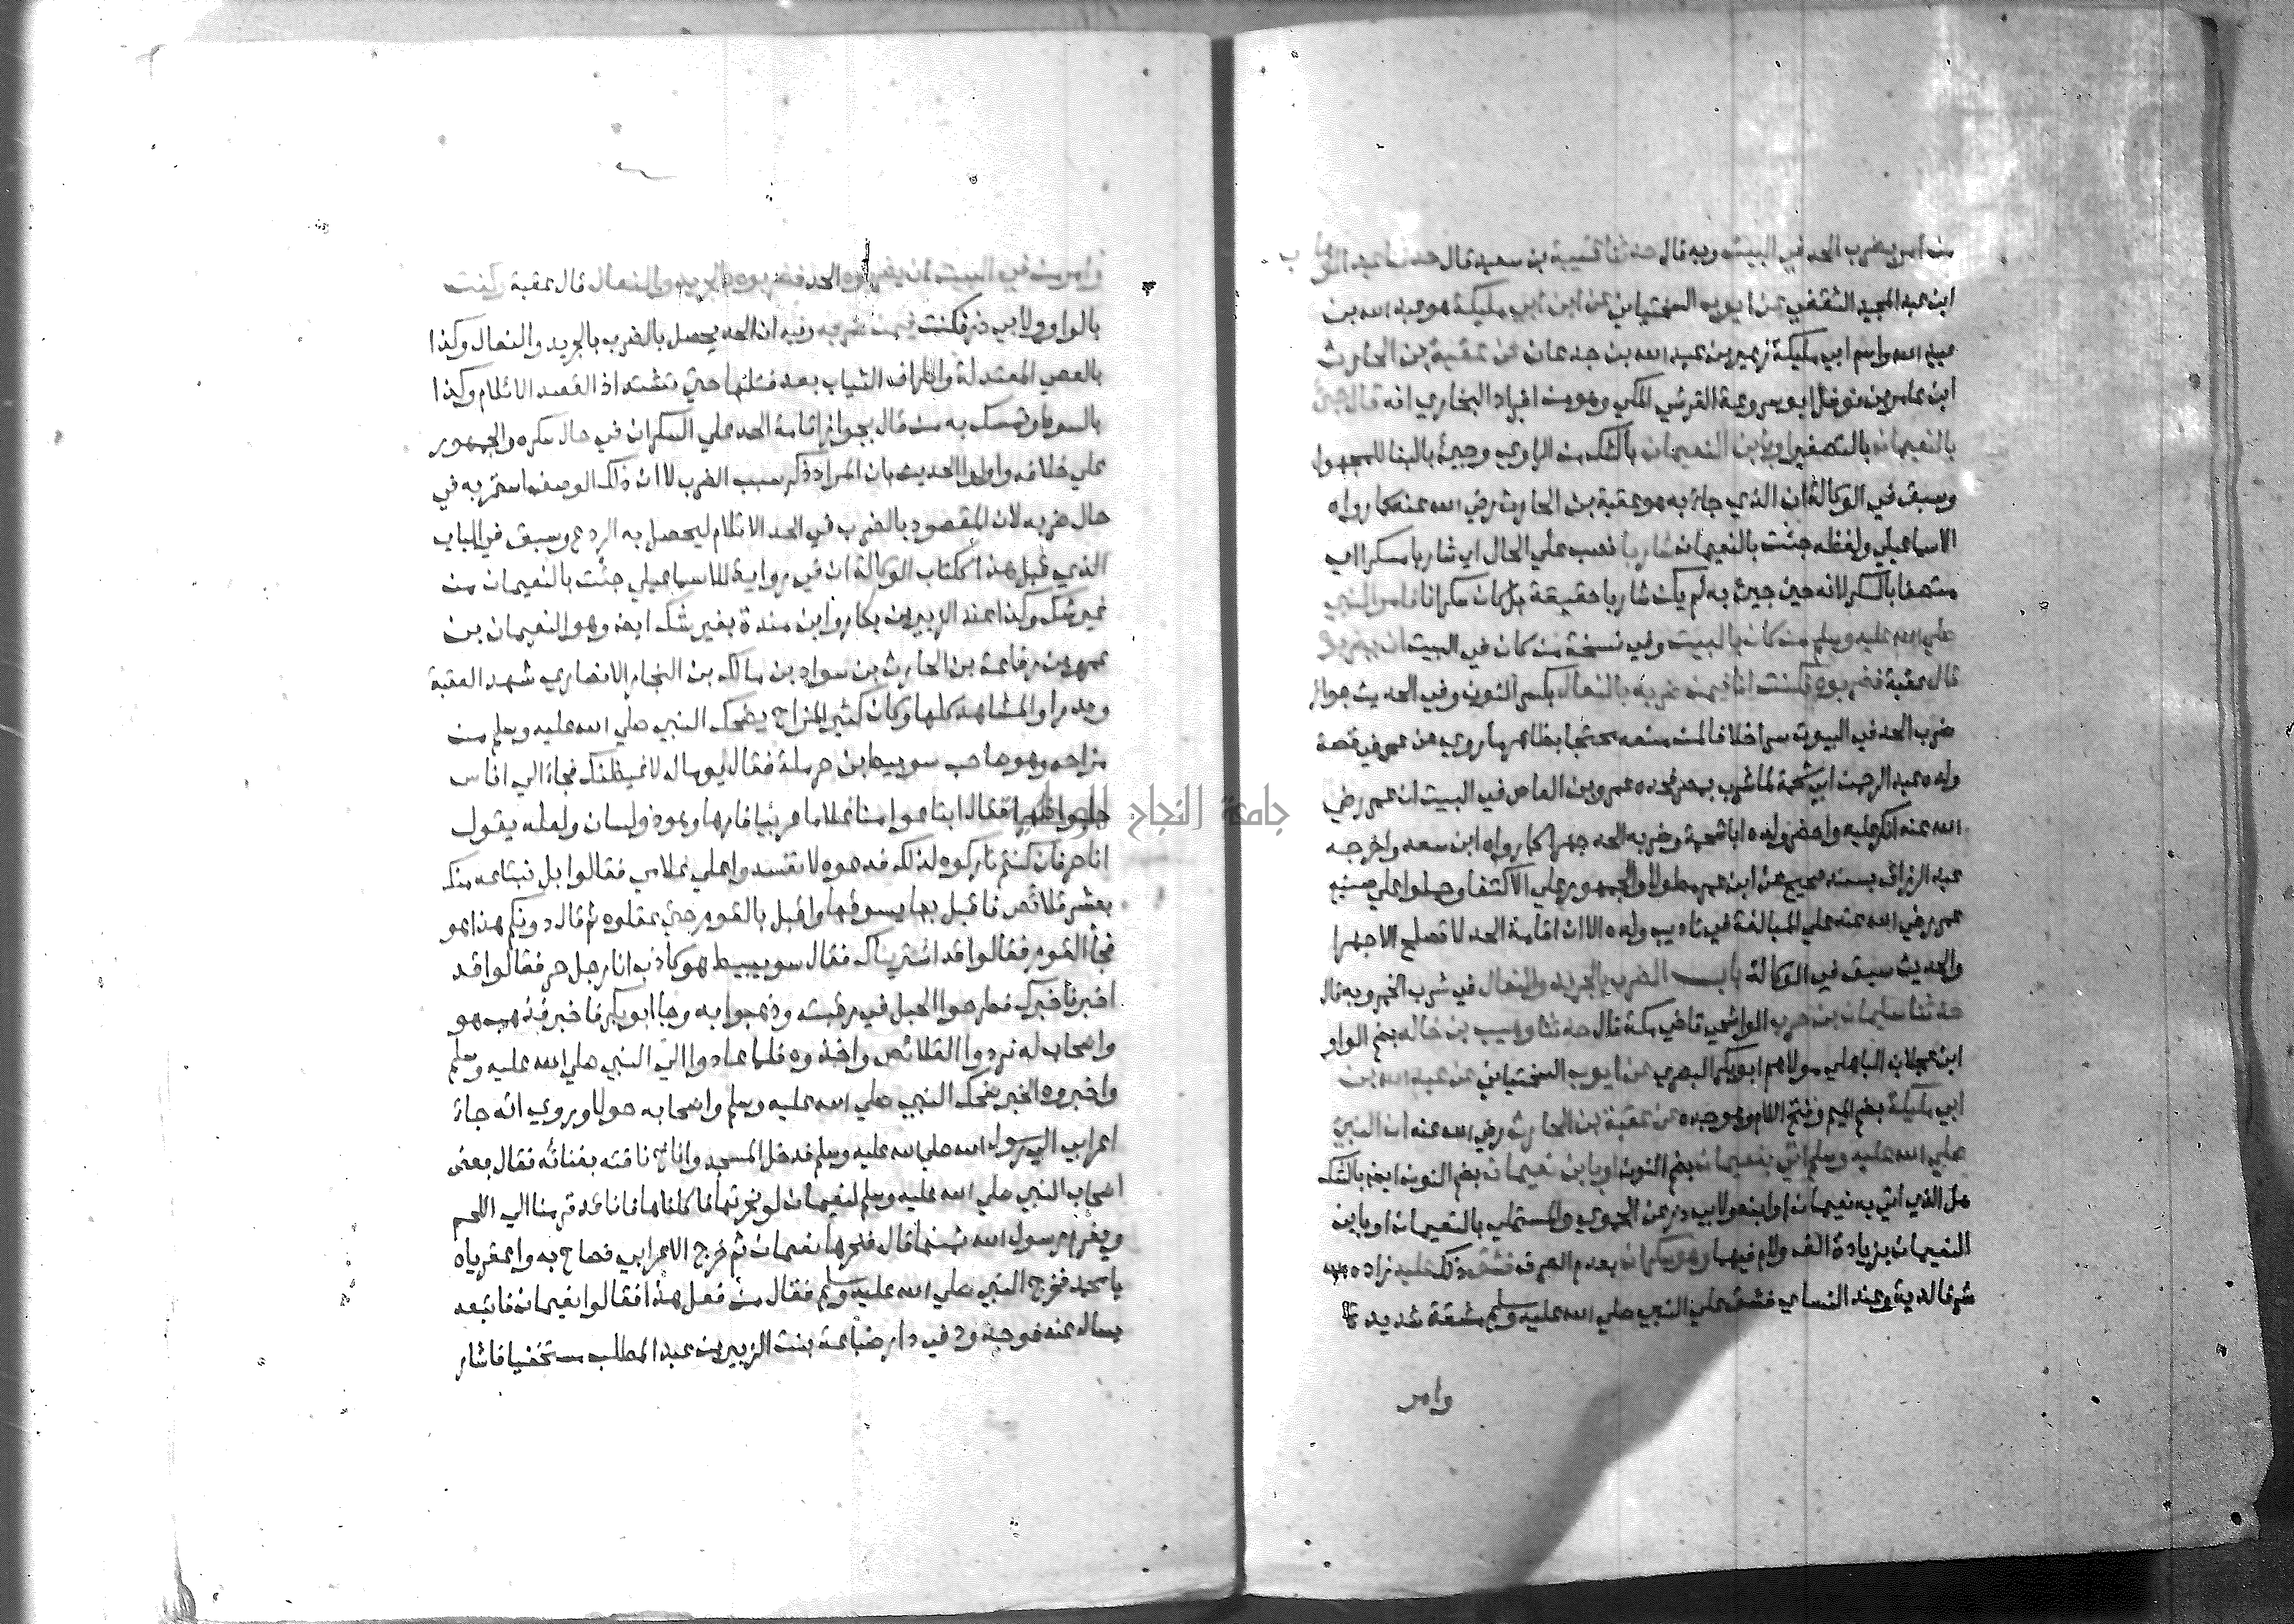 من امر بضرب الحد في البيت وبه قال حدثنا قتيبة بن سعيد قال حدثنا عبد الوهاب
ابن عبد المجيد الثقفي عن ايوب السختياني عن ابن ابي مليكة هو عبد الله بن
عبيد الله واسم ابي مليكة زهير بن عبد الله بن جدعان عن عقبة بن الحارث
ابن عامر بن نوفل ابو سروعة القرشي المكي وهو من افراد البخاري انه قال جيئ
بالنعيمان بالتصغير او بابن النعيمان بالشك من الراوي وجيئ بالبنا للمجهول
وسبق في الوكالة ان الذي جاء به هو عقبة بن الحارث رضي الله عنه كما رواه
الاسماعيلي ولفظه جئت بالنعيمان شاربا نصب علي الحال اي شاربا مسكرا اي
متصفا بالسكر لانه حين جيئ به لم يكن شاربا حقيقة بل كان سكرانا فامر النبي
صلي الله عليه وسلم من كان بالبيت وفي نسخة من كان في البيت ان يضربوه
قال عقبة فضربوه فكنت انا فيمن ضربه بالنعال بكسر النون وفي الحديث جواز
ضرب الحد في البيوت سرا خلافا لمن منعه محتجا بظاهر ما روي عن عمر في قصة
ولده عبد الرحمن ابي شحمة لما شرب بمصر فحده عمرو بن العاص في البيت ان عمر رضي
الله عنه انكر عليه واحضر ولده ابا شحمة وضربه الحد جهرا كما رواه ابن سعد واخرجه
عبد الرزاق بسند صحيح عن ابن عمر مطولا والجمهور علي الاكتفا وحملوا علي صنيع
عمر رضي الله عنه علي المبالغة في تاديب ولده لا ان اقامة الحد لا تصلح الا جهرا
والحديث سبق في الوكالة باب الضرب بالجريد والنعال في شرب الخمر وبه قال
حدثنا سليمان بن حرب الواشحي قاضي مكة قال حدثنا وهيب بن خالد بضم الواو
ابن عجلان الباهلي مولاهم ابو بكر البصري عن ايوب السختياني عن عبد الله بن
ابي مليكة بضم الميم وفتح اللام وهو جده عن عقبة بن الحارث رضي الله عنه ان النبي
صلي الله عليه وسلم اتي بنعيمان بضم النون او بابن نعيمان بضم النون ايضا بالشك
هل الذي اتي به نعيمان او ابنه ولابي ذر عن الحموي والمستملي بالنعيمان او بابن
النعيمان بزيادة الف ولام فيهما وهو سكران بعدم الصرف فشق ذلك عليه زاده
شرفا لديه وعند النساي فشق علي النبي صلي الله عليه وسلم مشقة شديدة
وامر
وامر من في البيت ان يضربوه الحد فضربوه بالجريد والنعال قال عقبة وكنت
بالواو ولابي ذر فكنت فيمن ضربه وفيه ان الحد يحصل بالضرب بالجريد والنعال وكذا
بالعصي المعتدلة واطراف الثياب بعد فتلها حتي تشتد اذ القصد الايلام وكذا
بالسوط وتمسك به من قال بجواز اقامة الحد علي السكران في حال سكره والجمهور
علي خلافه واولوا الحديث بان المراد ذكر سبب الضرب لا ان ذلك الوصف استمر به في
حال ضربه لان المقصود بالضرب في الحد الايلام ليحصل به الردع وسبق في الباب
الذي قبل هذا ككتاب الوكالة ان في رواية للاسماعيلي جئت بالنعيمان من
غير شك وكذا عند الزبير بن بكار وابن مندة بغير شك ايضا وهو النعيمان بن
عمرو بن رفاعة بن الحارث بن سواد بن مالك بن النجار الانصاري شهد العقبة
وبدرا والمشاهد كلها وكان كثير المزاح يضحك النبي صلي الله عليه وسلم من
مزاحه وهو صاحب سويبط ابن حرملة فقال يوما له لاغيظنك فجاء الي اناس
جلبوا ظهرا فقال ابتاعوا مني غلاما عربيا فارها وهو ذو لسان ولعله يقول
انا حر فان كنتم تاركوه لذلك فدعوه لا تفسدوا علي غلامي فقالوا بل نبتاعه منك
بعشر قلائص فاقبل بها يسوقها واقبل بالقوم حتي عقلوه ثم قال دونكم هذا هو
فجأ القوم فقالوا قد اشتريناك فقال سويبيط هو كاذب انا رجل حر فقالوا قد
اخبرنا خبرك فطرحوا الحبل في رقبته وذهبوا به وجا ابو بكر فاخبر فذهب هو
واصحاب له فردوا القلائص واخذوه فلما عادوا الي النبي صلي الله عليه وسلم
واخبروه الخبر ضحك النبي صلي الله عليه وسلم واصحابه حولا وروي انه جاء
اعرابي الي رسول الله صلي الله عليه وسلم فدخل المسجد واناخ ناقته بفنائه فقال بعض
اصحاب النبي صلي الله عليه وسلم لنعيمان لو نحرتها فاكلناها فانا قد قرمنا الي اللحم
ويغرم رسول الله ثمنها قال فنحرها نعيمان ثم خرج الاعرابي فصاح به واعقرياه
يا محمد فخرج النبي صلي الله عليه وسلم فقال من فعل هذا فقالوا نعيمان فاتبعه
يسال عنه فوجدوه في دار ضباعة بنت الزبير بن عبد المطلب مستخفيا فاشار
جامعة النجاح